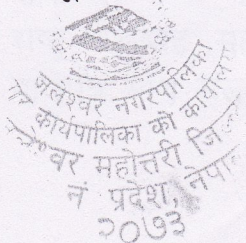 जलेश्वर नगरपालिका
नगर कार्यपालिका को कार्यालय
जलेश्वर महोत्तरी जिल्ला
नं प्रदेश, नेपाल
२०७३